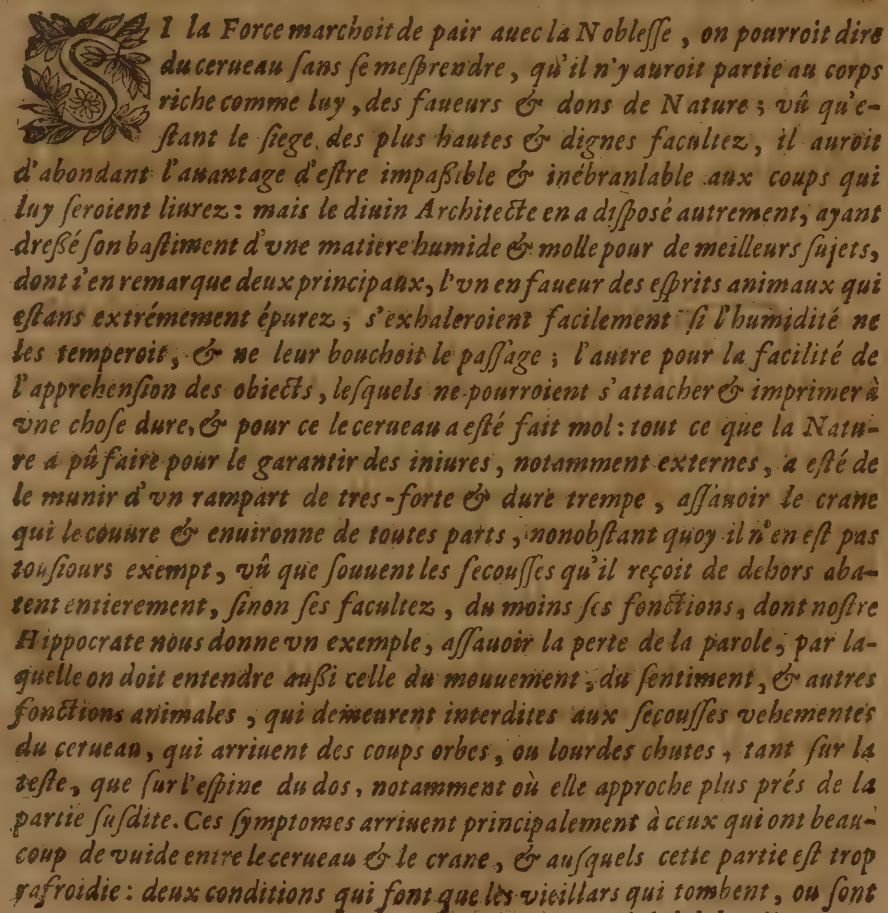 SI la Force marchoit de pair auec la Noblesse, on pourroit dire
du cerueau sans se mesprendre, qu'il n'y auroit partie au corps
riche comme luy, des faueurs & dons de Nature; vû qu'e-
stant le siege des plus hautes & dignes facultez, il auroit
d'abondant l'auantage d'estre impaßible & inébranlable aux coups qui
luy seroient liurez: mais le diuin Architecte en a disposé autrement, ayant
dreßé son bastiment d'vne matiere humide & molle pour de meilleurs sujets,
dont i'en remarque deux principaux, l'vn en faueur des esprits animaux qui
estans extrémement épurez, s'exhaleroient facilement si l'humidité ne
les temperoit, & ne leur bouchoit le passage; l'autre pour la facilité de
l'apprehension des obiects, lesquels ne pourroient s'attacher & imprimer à
vne chose dure, & pour ce le cerueau a esté fait mol: tout ce que la Natu-
re a pû faire pour le garantir des iniures, notamment externes, a esté de
le munir d'vn rampart de tres-forte & dure trempe, assauoir le crane
qui le couure & enuironne de toutes parts, nonobstant quoy il n'en est pas
tousiours exempt, vû que souuent les secousses qu'il reçoit de dehors aba-
tent entierement, sinon ses facultez, du moins ses fonctions, dont nostre
Hippocrate nous donne vn exemple, assauoir la perte de la parole, par la-
quelle on doit entendre außi celle du mouuement, du sentiment, & autres
fonctions animales, qui demeurent interdites aux secousses vehementes
du cerueau, qui arriuent des coups orbes, ou lourdes chutes, tant sur la
teste, que sur l'espine du dos, notamment où elle approche plus prés de la
partie susdite. Ces symptomes arriuent principalement à ceux qui ont beau-
coup de vuide entre le cerueau & le crane, & ausquels cette partie est trop
rafroidie: deux conditions qui font que les vieillars qui tombent, ou sont